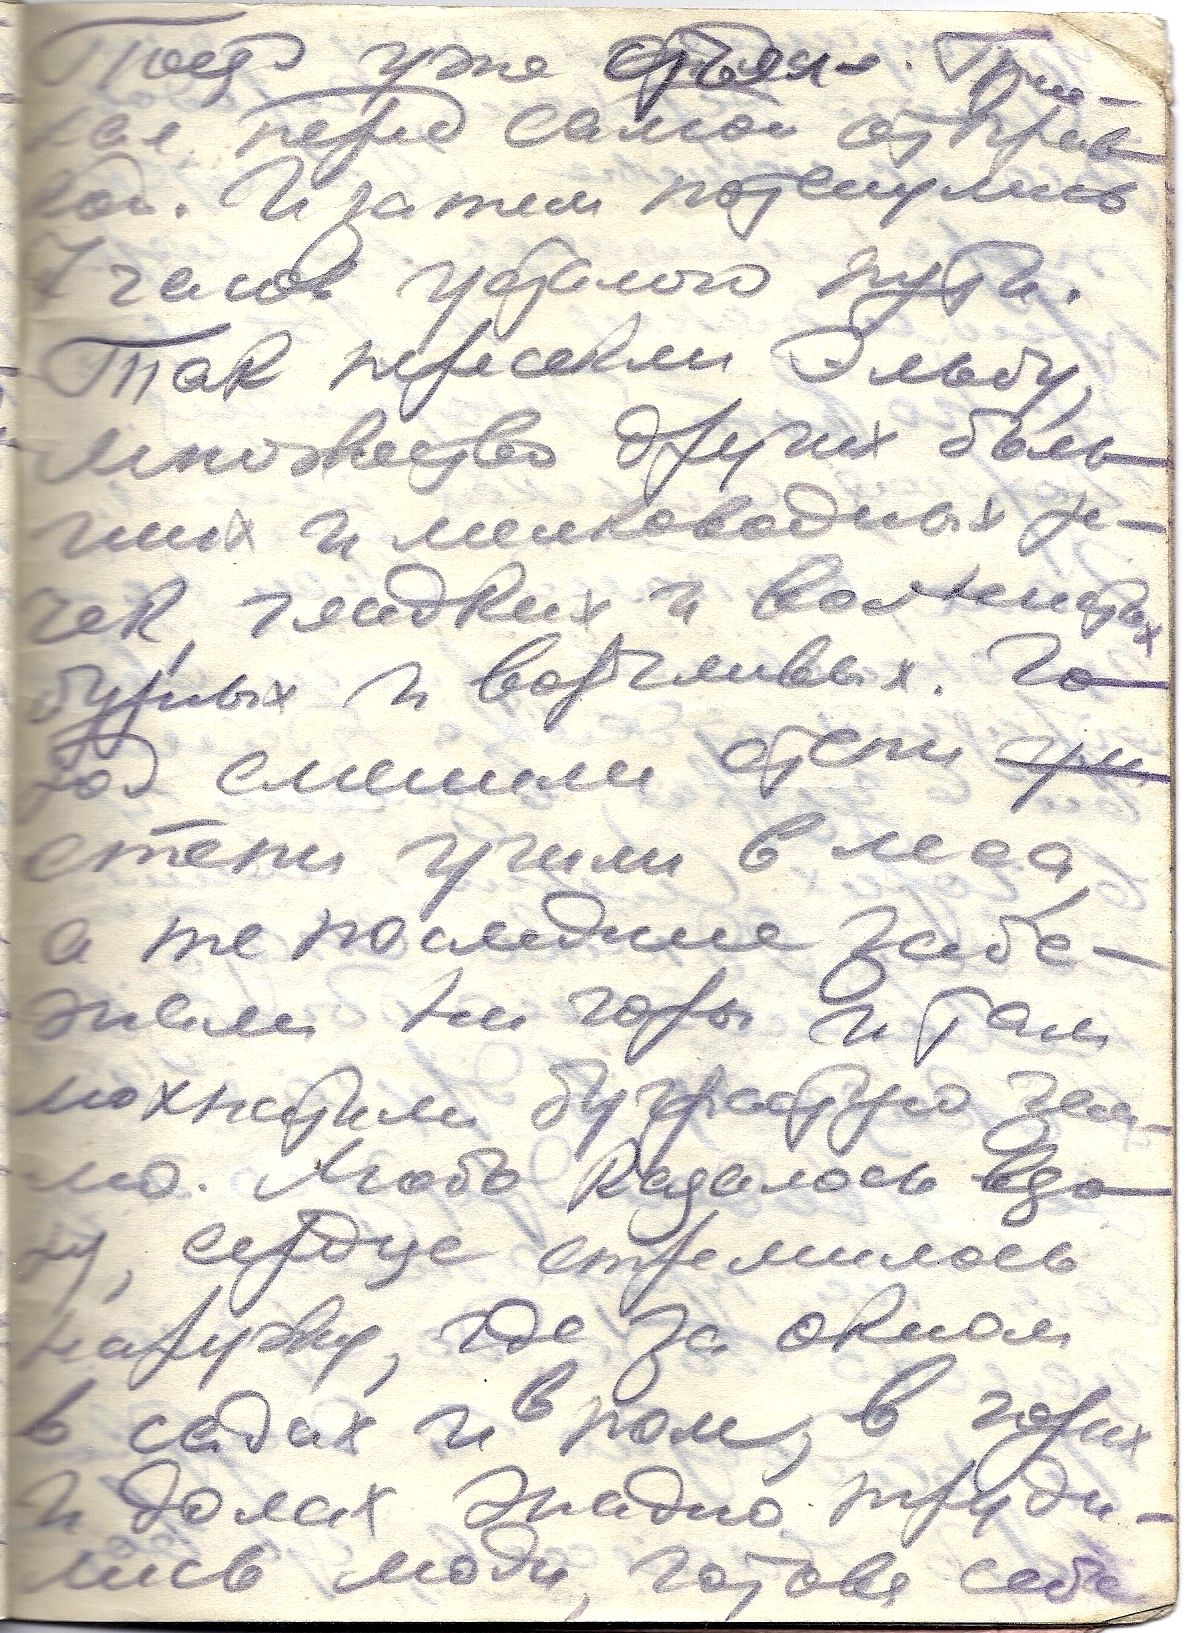 Поезд уже стоял. Прие-
хал перед самой отправ
кой. И затем потянулись
7 часов усталого пути.
Так пересекли Эльбу,
множество других боль
ших и мелководных ре-
чек, гладких и волнистых
бурных и ворчливых. Го-
род сменили степи
степи ушли в леса,
а те последние забе-
жали на горы и там
мохнатили бугристую зем-
лю. Любо казалось вдо-
ху, сердце стремилось
наружу, где за окном
в садах и в поле, в горах
и долах жадно труди-
лись люди, готовя себе